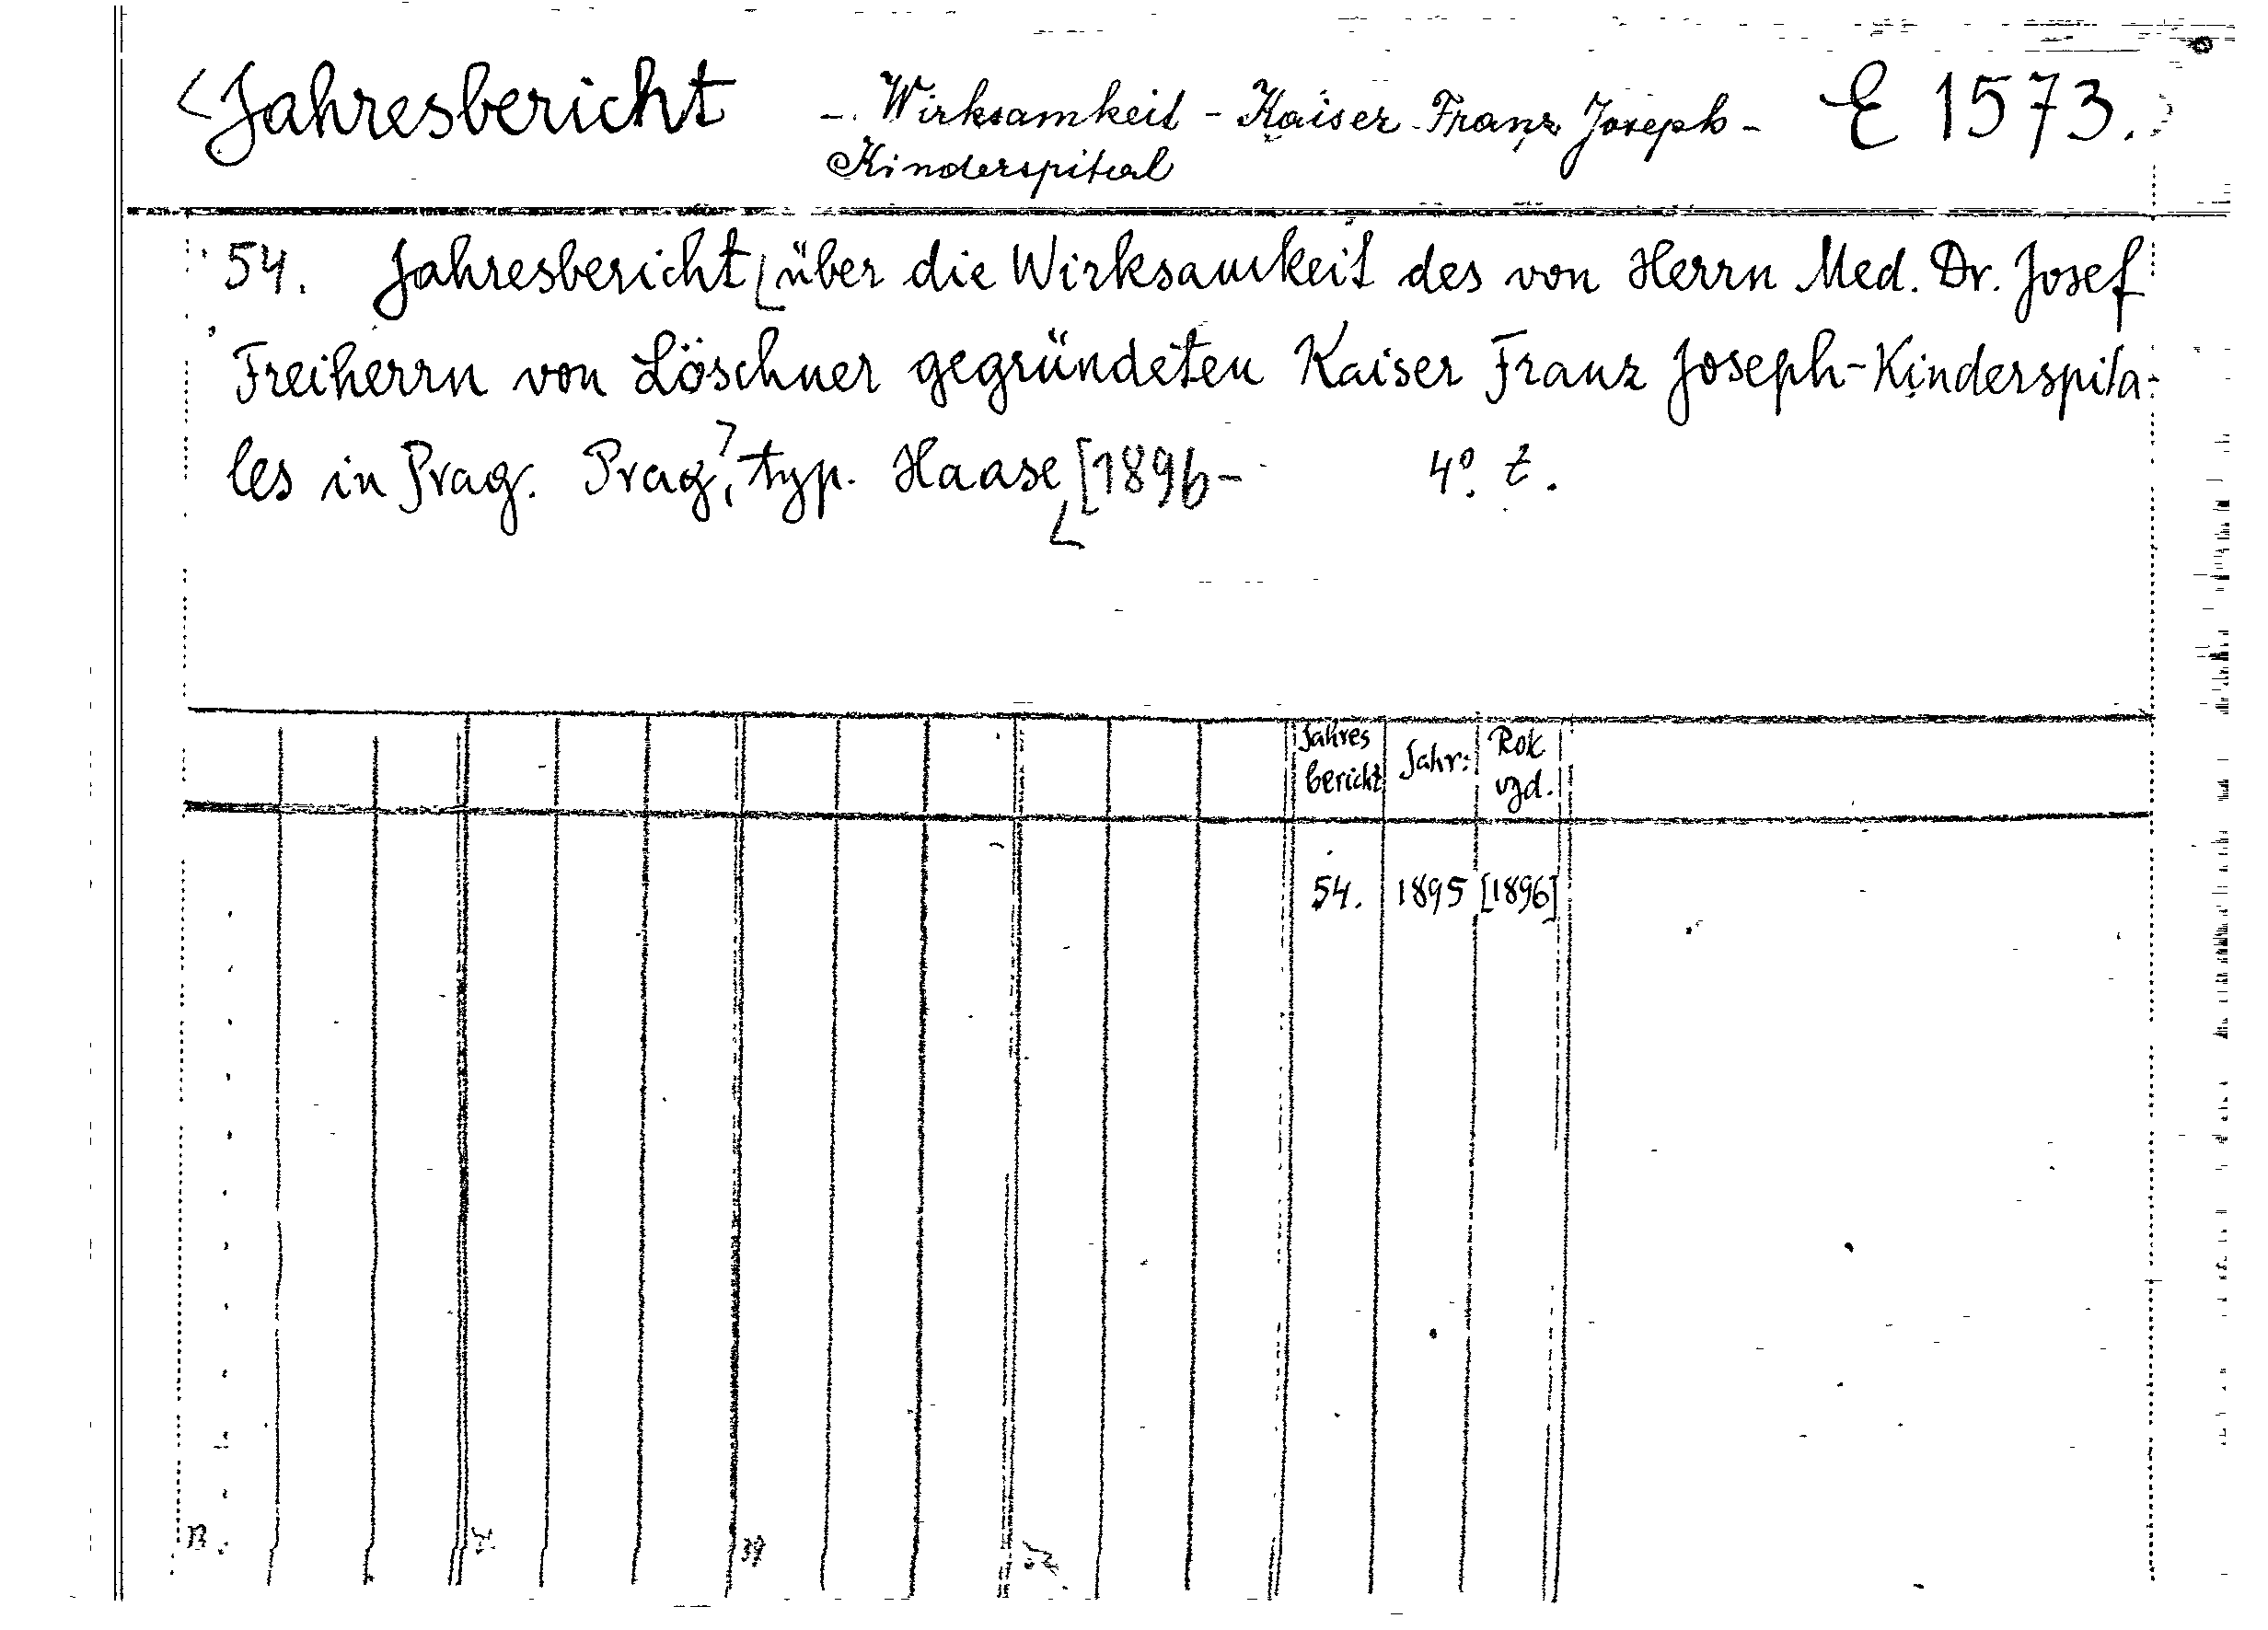 Jahresbericht -. Wirksamkeit - Kaiser-Franz Joseph- E 1573.
Kinderspital
54. Jahresbericht über die Wirksamkeit des von Herrn Med. Dr. Josef
Freiherrn von Löschner gegründeten Kaiser Franz Joseph-Kinderspita-
les in Prag. Prag, typ. Haase [1896- 4º. t.
Jahres bericht Jahr: Rok vyd.
54. 1895 [1896]